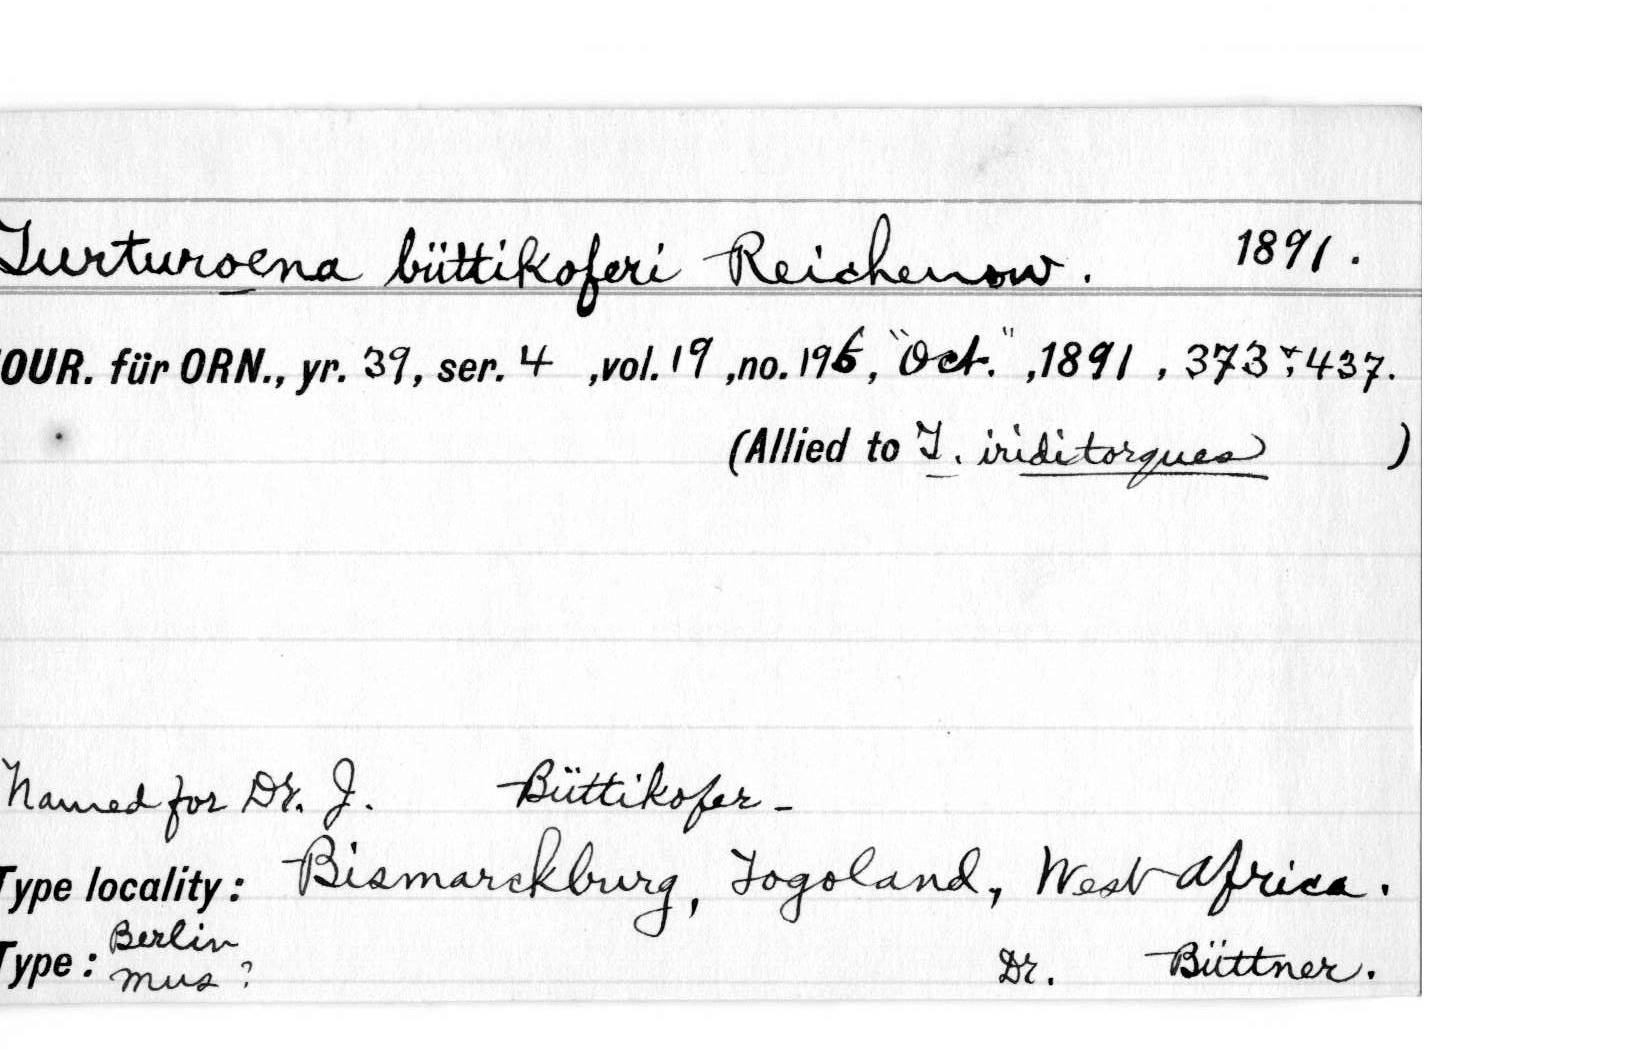 Turturoena büttikoferi Reichenow. 1891.
OUR. für ORN., yr. 39, ser. 4, vol. 19, no. 196, "Oct.", 1891, 373 + 437.
(Allied to T. iriditorques)
Named for Dr. J. Büttikofer -
Type locality: Bismarckburg, Togoland, West Africa.
Type: Berlin
Mus? Dr. Büttner.